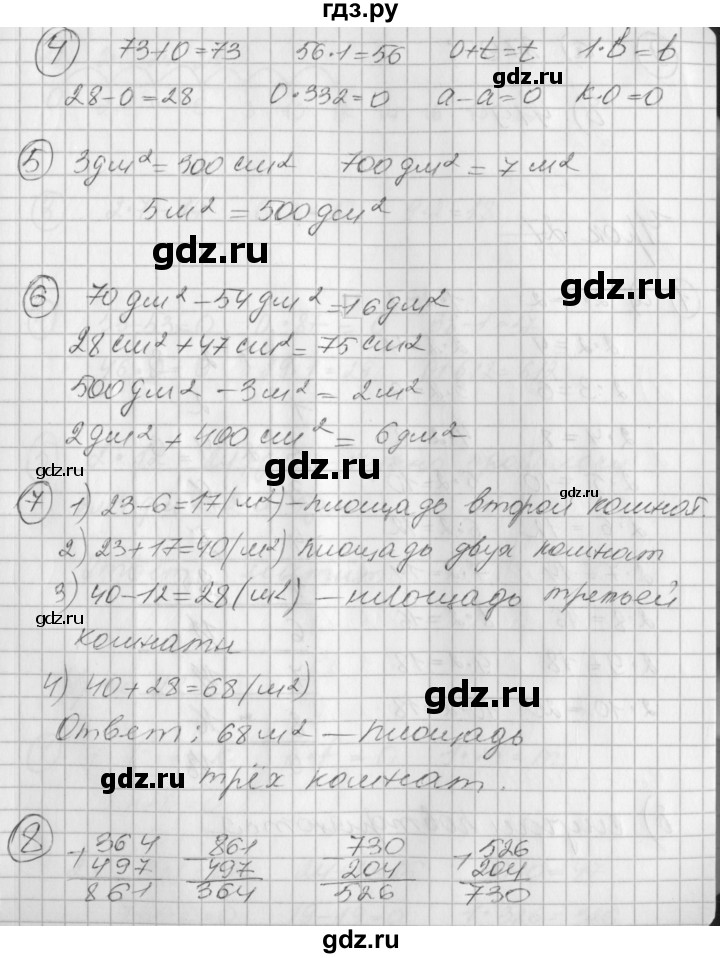 гдз.ру
4 73+0=73 56·1=56 0+t=t 1·b=b
gdz.ru
28-0=28 0·332=0 a-a=0 k·0=0
gdz.ru
5 3дм²=300см² 700дм²=7м²
5м²=500дм²
gdz.ru
gdz.ru
6 70дм²-54дм²=16дм²
28см²+47см²=75см²
500дм²-3м²=2м²
2дм²+400см²=6дм²
gdz.ru gdz.ru
gdz.ru
7 1) 23-6=17(м²)-площадь второй комнат.
2) 23+17=40(м²) площадь двух комнат
3) 40-12=28(м²) - площадь третьей
gdz.ru
комнаты
4) 40+28=68(м²)
gdz.ru
Ответ: 68м² - площадь
gdz.ru трёх комнат.
8 +364 -861 -730 +526
497 497 204 204
861 364 526 730
gdz.ru
gdz.ru